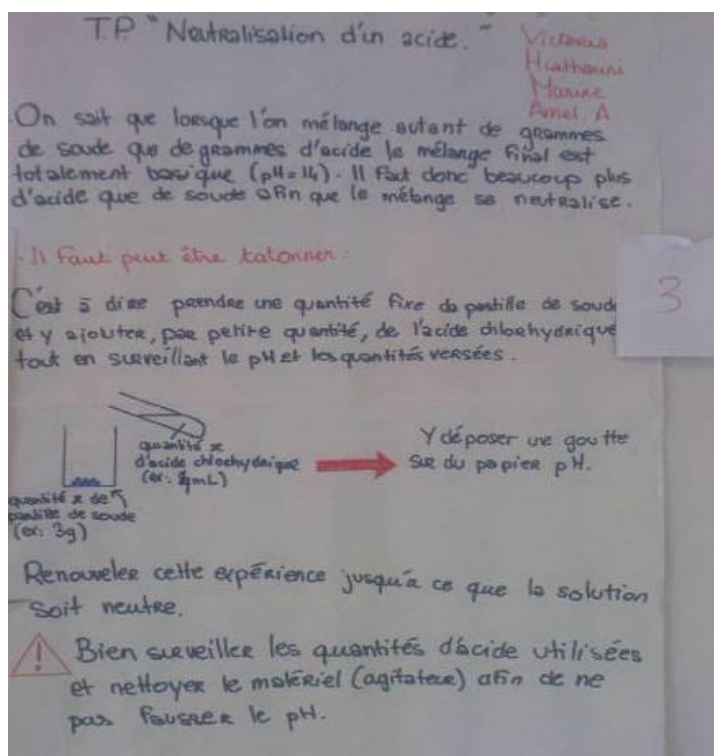 TP "Neutralisation d'un acide."
Victoria
Marine
Amel. A
On sait que lorsque l'on mélange autant de grammes
de soude que de grammes d'acide le mélange final est
totalement basique (pH=14). Il faut donc beaucoup plus
d'acide que de soude afin que le mélange se neutralise.
Il faut peut être tatonner:
C'est à dire prendre une quantité fixe de pastille de soude
et y ajouter, par petite quantité, de l'acide chlorhydrique
tout en surveillant le pH et les quantités versées.
3
quantité x
d'acide chlorhydrique
(ex: mL)
Y déposer une goutte
sur du papier pH.
quantité x de
pastille de soude
(ex: 3g)
Renouveler cette expérience jusqu'à ce que la solution
soit neutre.
! Bien surveiller les quantités d'acide utilisées
et nettoyer le matériel (agitateur) afin de ne
pas fausser le pH.